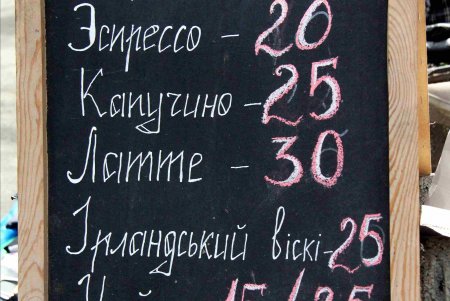 Эспрессо - 20
Капучино - 25
Латте - 30
Ірландський віскі - 25